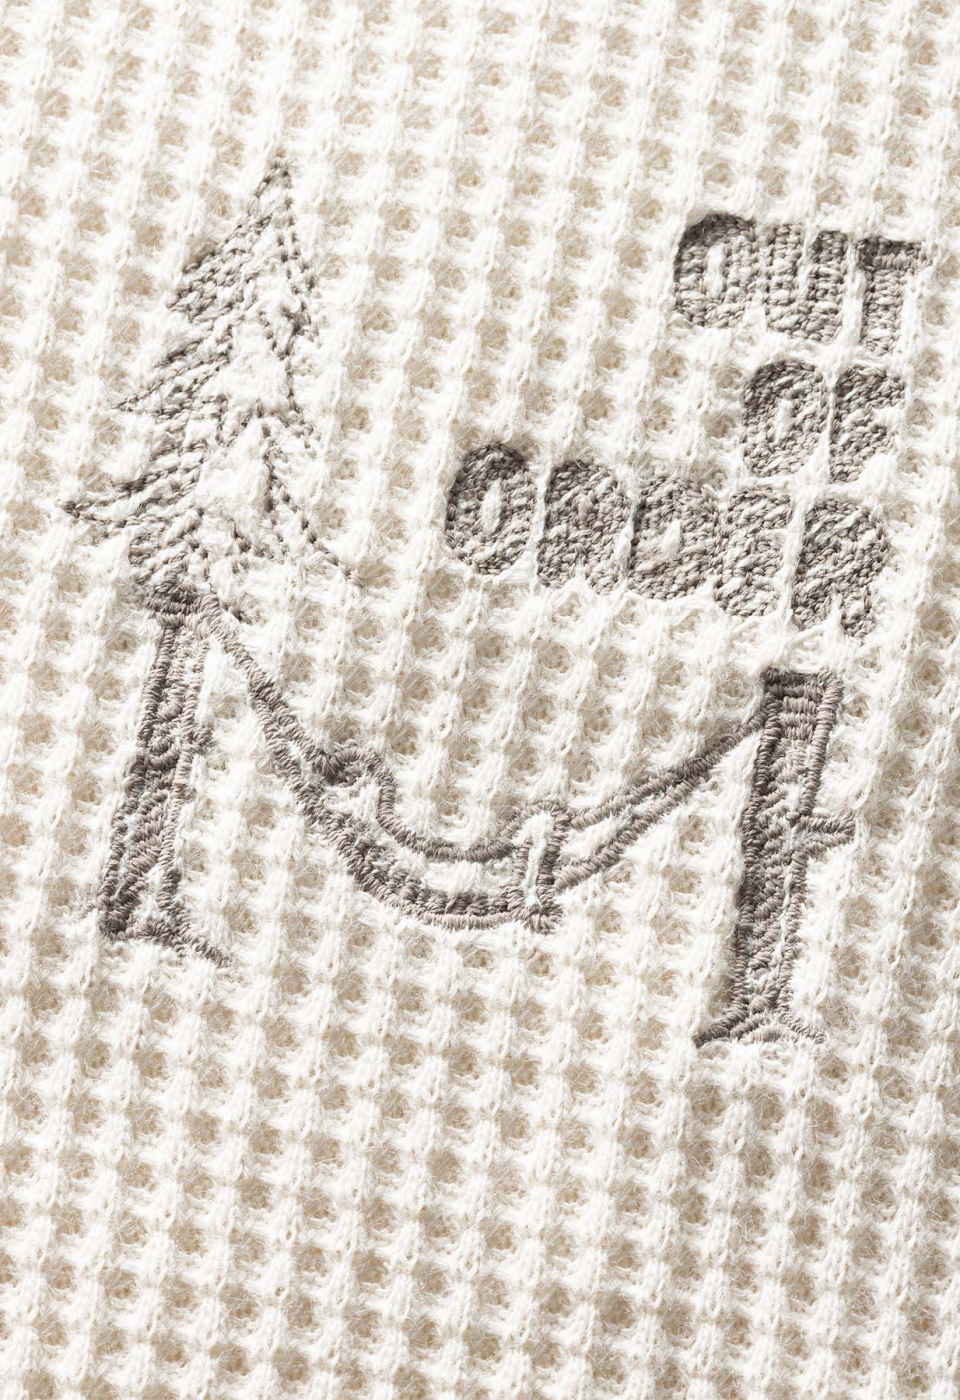 OUT
OF
ORDER